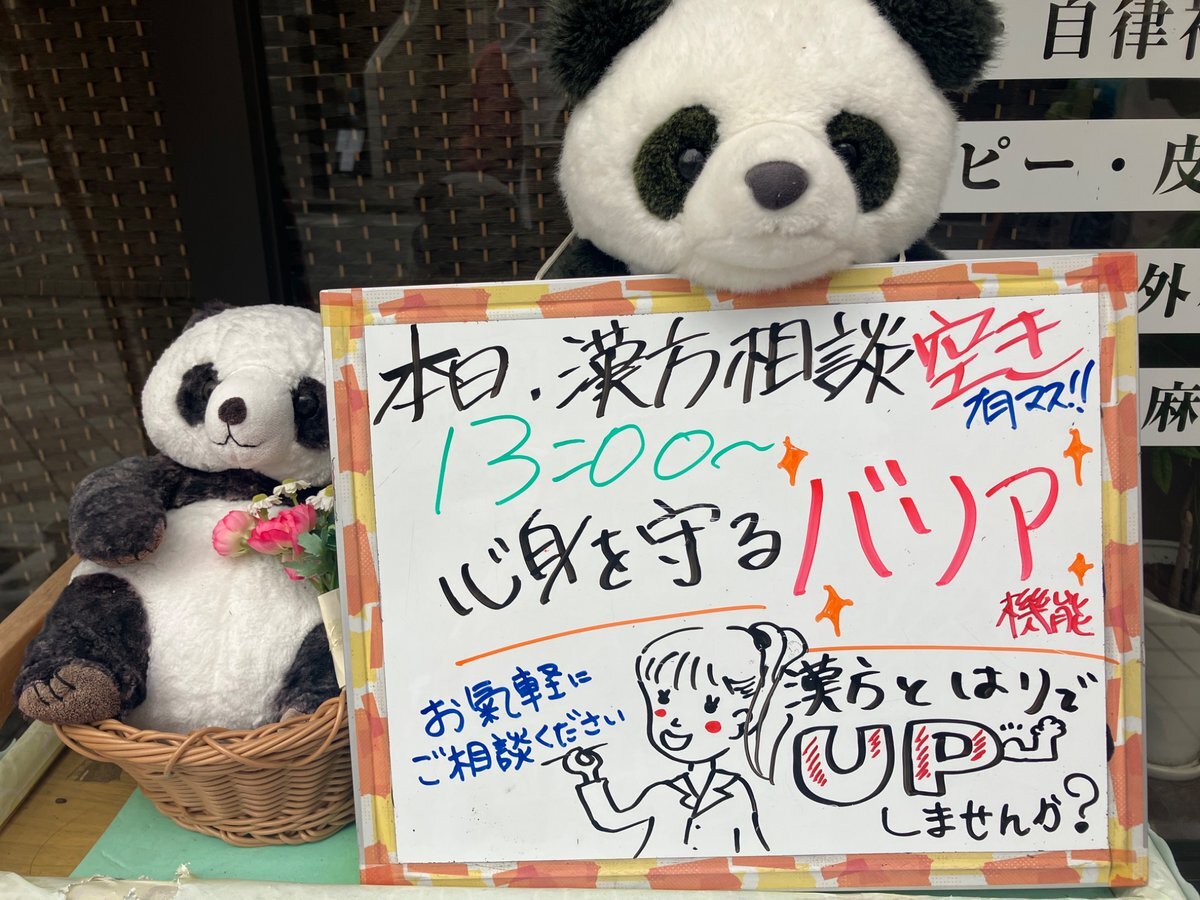 本日.漢方相談空き
有マス!!
13:00〜
心身を守るバリア
機能
お氣軽に
ご相談ください
漢方とはりで
UP
しませんか?
自律神
ピー・皮
外
麻